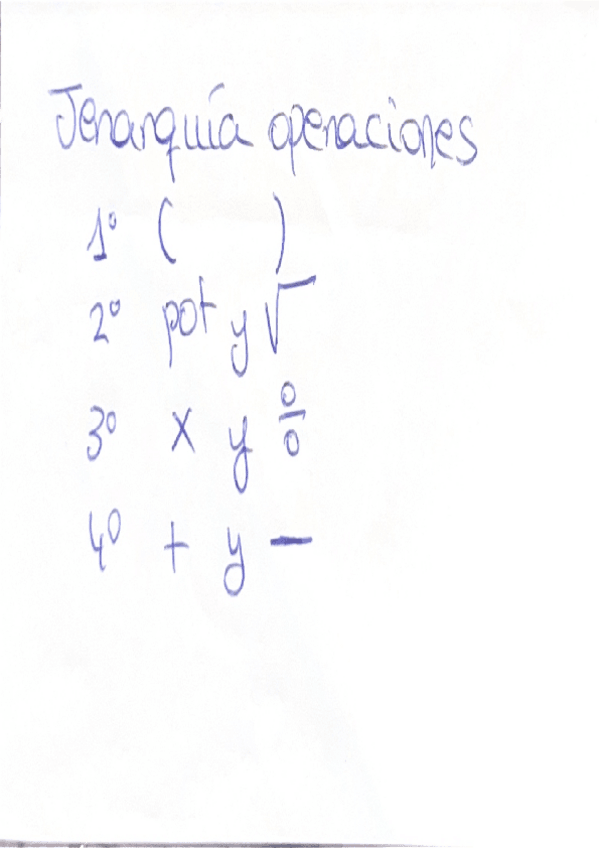 Jerarquía operaciones
1º (      )
2º pot y √
3º x y ÷
4º + y -